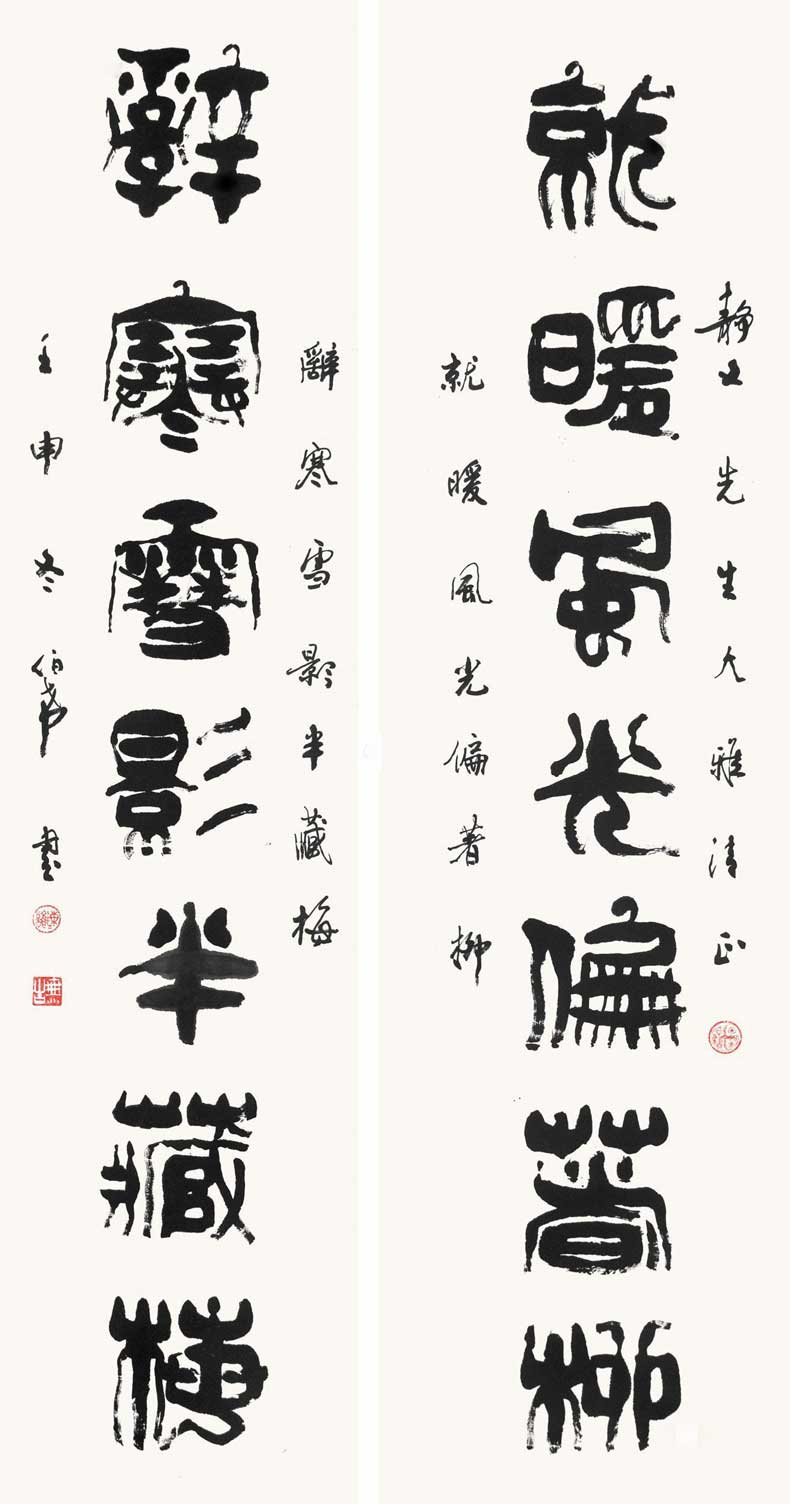 静文先生大雅清正
就暖風光偏著柳
就暖風光偏著柳
辭寒雪影半藏梅
辭寒雪影半藏梅
壬申冬伯舉書